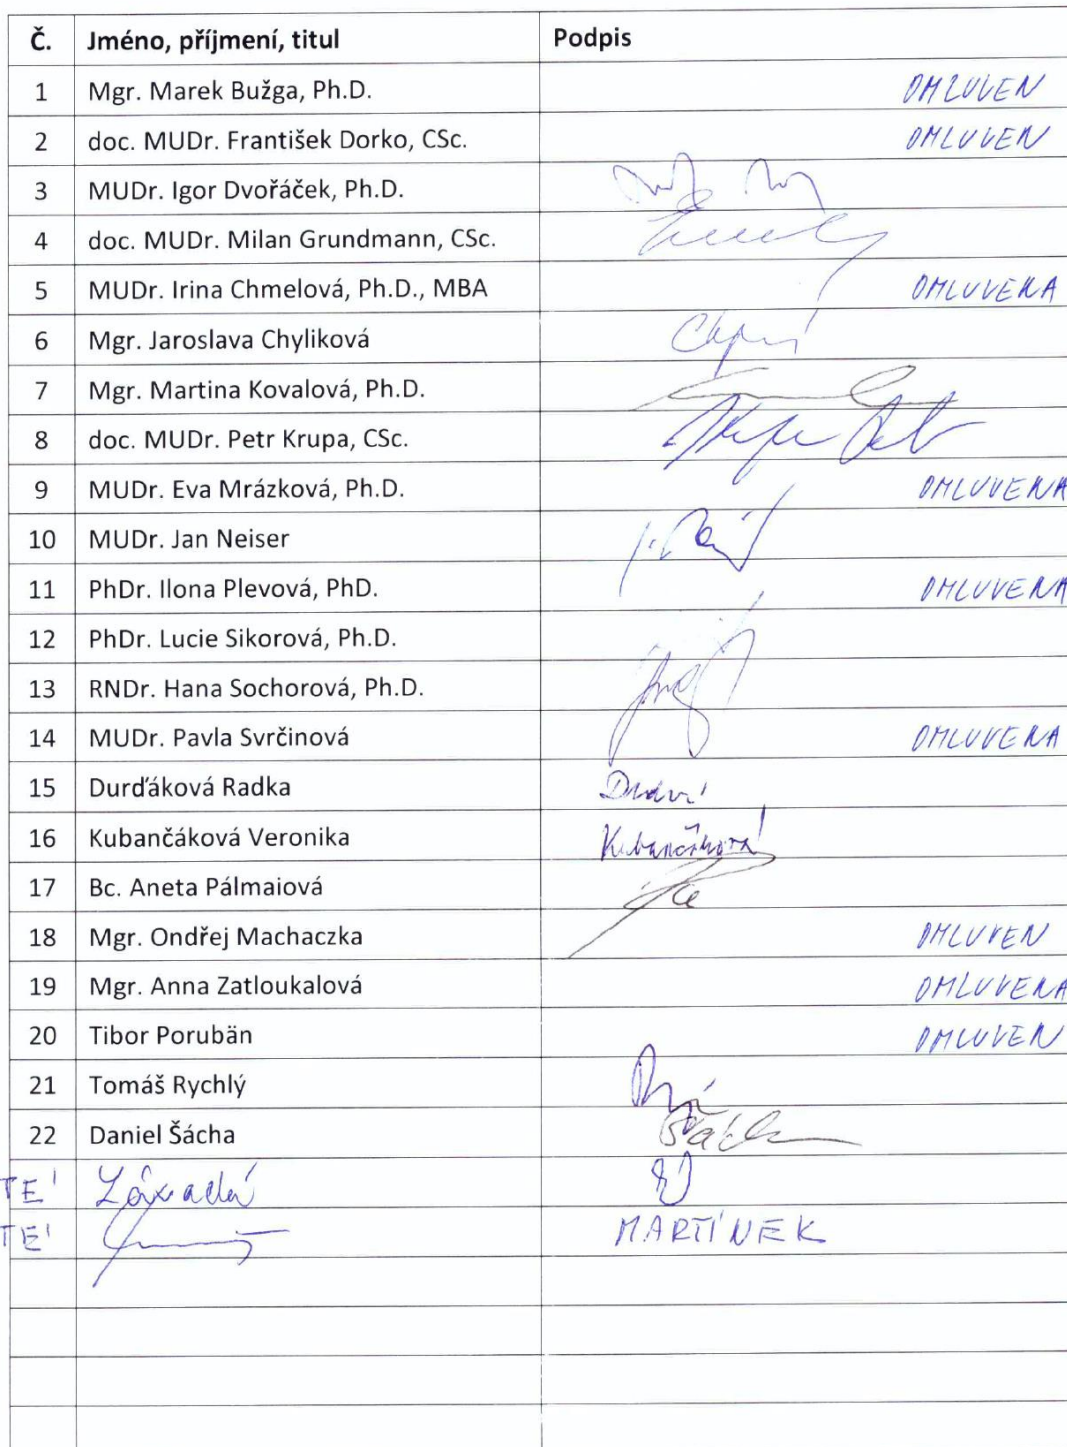 Č. Jméno, příjmení, titul Podpis
1 Mgr. Marek Bužga, Ph.D. OMLUVEN
2 doc. MUDr. František Dorko, CSc. OMLUVEN
3 MUDr. Igor Dvořáček, Ph.D.
4 doc. MUDr. Milan Grundmann, CSc.
5 MUDr. Irina Chmelová, Ph.D., MBA OMLUVENA
6 Mgr. Jaroslava Chyliková
7 Mgr. Martina Kovalová, Ph.D.
8 doc. MUDr. Petr Krupa, CSc.
9 MUDr. Eva Mrázková, Ph.D. OMLUVENA
10 MUDr. Jan Neiser
11 PhDr. Ilona Plevová, PhD. OMLUVENA
12 PhDr. Lucie Sikorová, Ph.D.
13 RNDr. Hana Sochorová, Ph.D.
14 MUDr. Pavla Svrčinová OMLUVENA
15 Durďáková Radka
16 Kubančáková Veronika
17 Bc. Aneta Pálmaiová
18 Mgr. Ondřej Machaczka OMLUVEN
19 Mgr. Anna Zatloukalová OMLUVENA
20 Tibor Porubän OMLUVEN
21 Tomáš Rychlý
22 Daniel Šácha
TÉ
TÉ MARTÍNEK